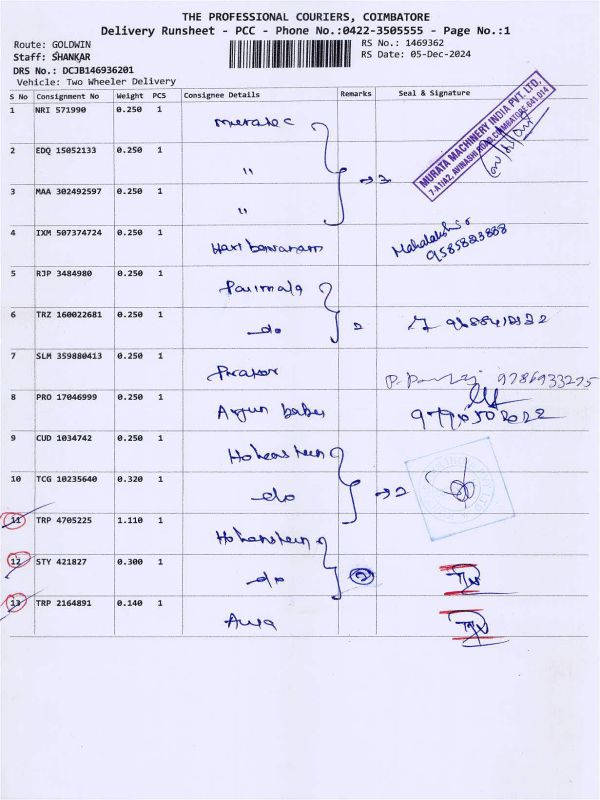 THE PROFESSIONAL COURIERS, COIMBATORE
Delivery Runsheet - PCC - Phone No.:0422-3505555 - Page No.:1
Route: GOLDWIN
RS No.: 1469362
Staff: SHANKAR
RS Date: 05-Dec-2024
DRS No.: DCJB146936201
Vehicle: Two Wheeler Delivery
S No Consignment No Weight PCS Consignee Details Remarks Seal & Signature
1 NRI 571990 0.250 1
MURATA MACHINERY INDIA PVT. LTD.
7-A1/A2, AVINASHI ROAD, COIMBATORE-641 014
2 EDQ 15052133 0.250 1 " 3
3 MAA 302492597 0.250 1 "
4 IXM 507374724 0.250 1 Hari bavanam 9585823888
5 RJP 3484980 0.250 1 Parimala
6 TRZ 160022681 0.250 1 do 2
7 SLM 359880413 0.250 1 9786933275
8 PRO 17046999 0.250 1 Arjun babu
9 CUD 1034742 0.250 1 Hohenstein
10 TCG 10235640 0.320 1 do 2
11 TRP 4705225 1.110 1 Hohenstein
12 STY 421827 0.300 1 do 2
13 TRP 2164891 0.140 1